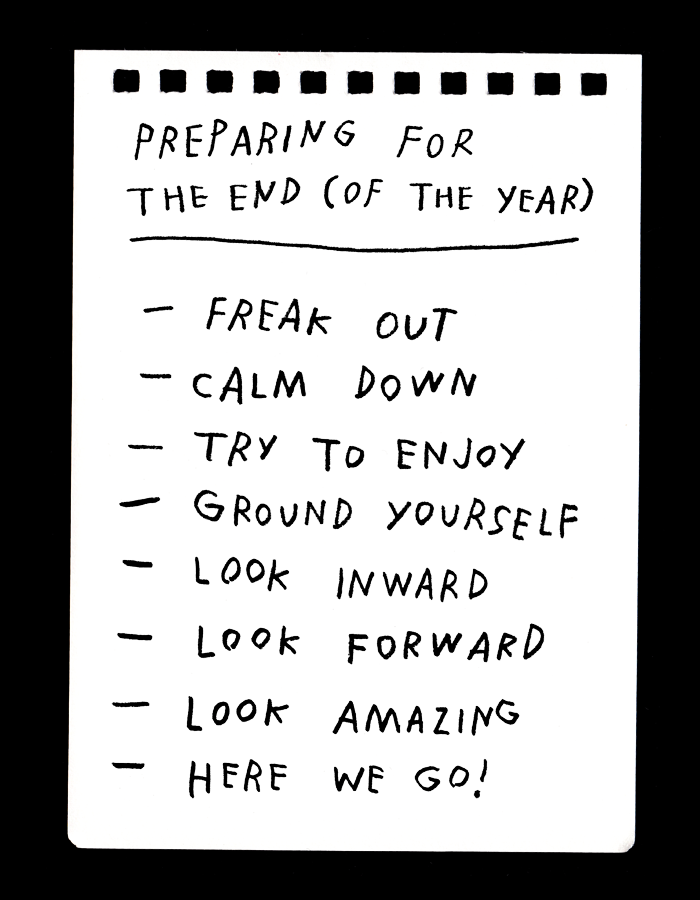 PREPARING FOR
THE END (OF THE YEAR)
- FREAK OUT
- CALM DOWN
- TRY TO ENJOY
- GROUND YOURSELF
- LOOK INWARD
- LOOK FORWARD
- LOOK AMAZING
- HERE WE GO!